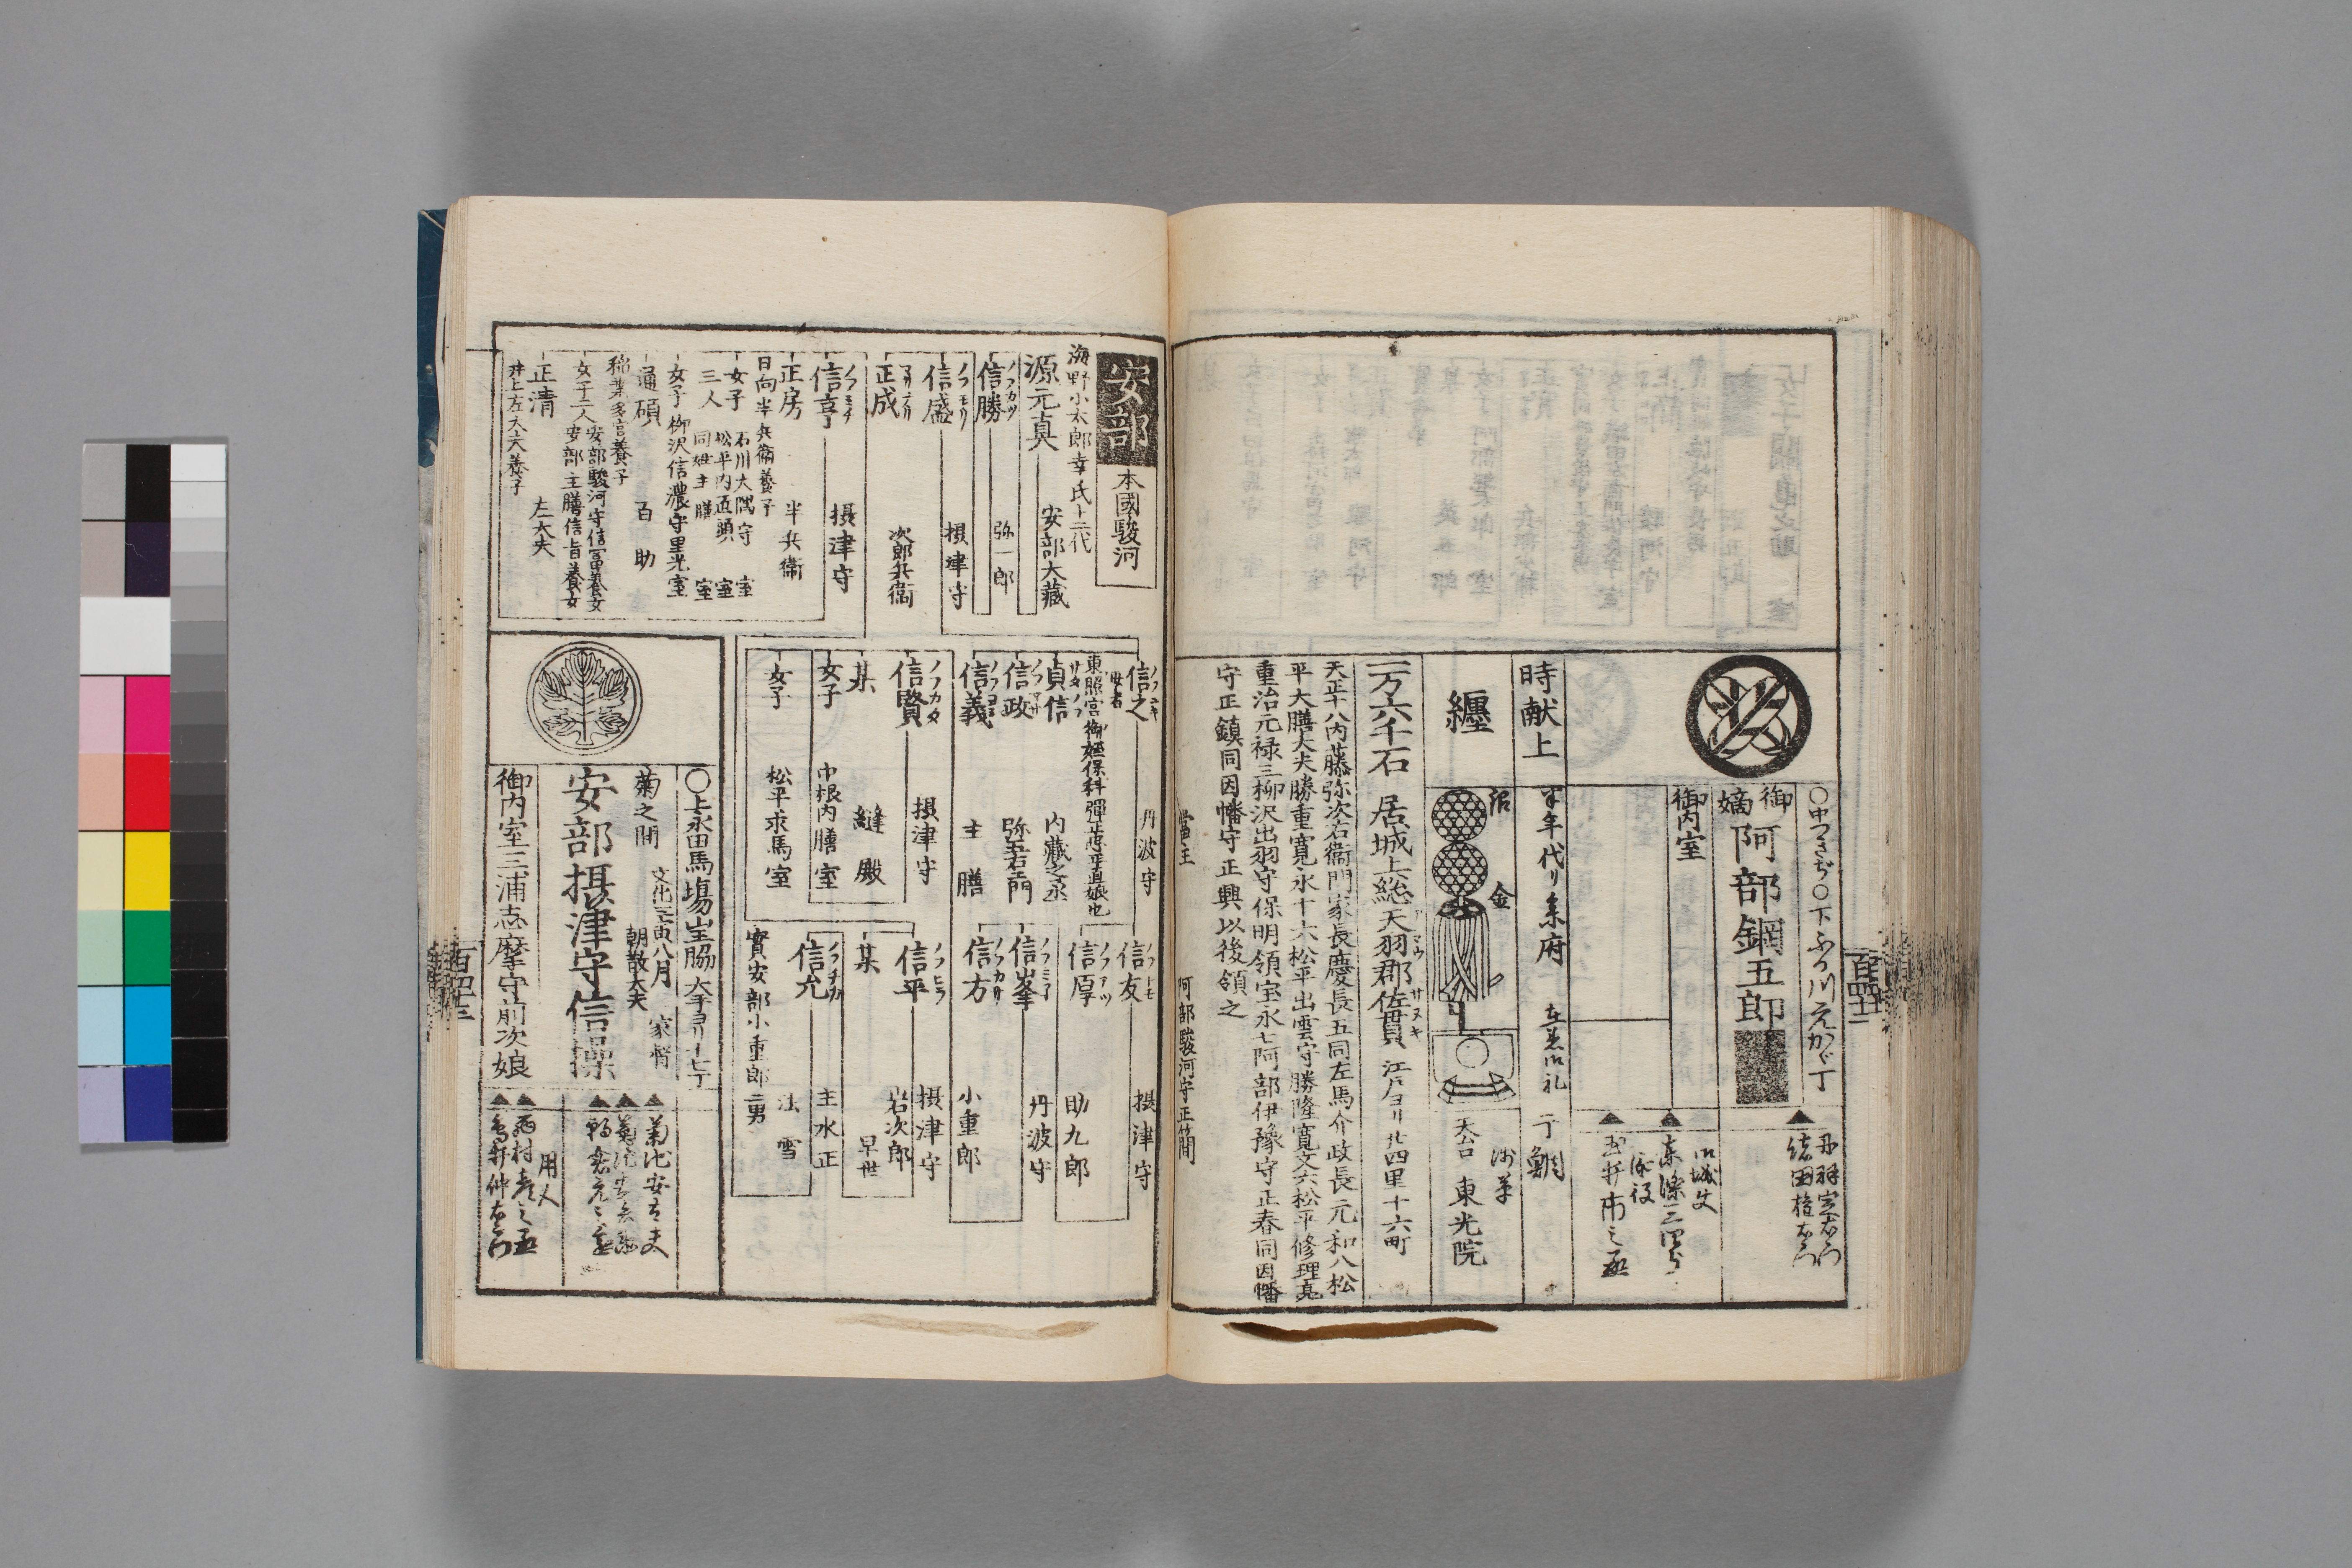 ○中つきぢ○下ふか川元かがし丁
御嫡
阿部鋼五郎
御内室
御城丈
添役
時献上
半年代り参府
在着御礼
干鯛
纏
金
天台
浅草
東光院
一万六千石
居城上総天羽郡佐貫
アマウ
サヌキ
江戸ヨリ廿四里十六町
天正十八内藤弥次右衛門家長慶長五同左馬介政長元和八松
平大膳大夫勝重寛永十六松平出雲守勝隆寛文六松平修理亮
重治元禄三柳沢出羽守保明領宝永七阿部伊豫守正春同因幡
守正鎮同因幡守正興以後領之
當主
阿部駿河守正簡
百四十二
安部
本國駿河
海野小太郎幸氏十二代
源元真
安部大藏
信勝
ノフカツ
弥一郎
信盛
ノフモリ
摂津守
正成
次郎兵衛
信亨
摂津守
正房
半兵衛
日向半兵衛養子
女子
三人
石川大隅守室
松平内匠頭室
同姓主膳室
女子
柳沢信濃守里光室
通碩
百助
稲葉多宮養子
女子二人
安部駿河守信冨養女
安部主膳信旨養女
正清
左大夫
井上左大夫養子
信之
ノフユキ
丹波守
母者
東照宮御姪保科彈正直娘也
貞信
サタノフ
内藏之丞
信政
弥五右衛門
信義
主膳
信賢
ノフカタ
摂津守
某
縫殿
女子
中根内膳室
女子
松平求馬室
信友
ノフトモ
摂津守
信厚
ノフアツ
助九郎
信峯
ノフミ子
丹波守
信方
ノフカタ
小重郎
信平
ノフヒラ
摂津守
某
岩次郎
早世
信允
ノフチカ
主水正
法雪
實安部小重郎二男
○上永田馬場山王脇
大手ヨリ十七丁
菊之間
文化三寅八月
家督
朝散大夫
安部摂津守信操
御内室三浦志摩守前次娘
菊池安太夫
用人
西村彦之丞